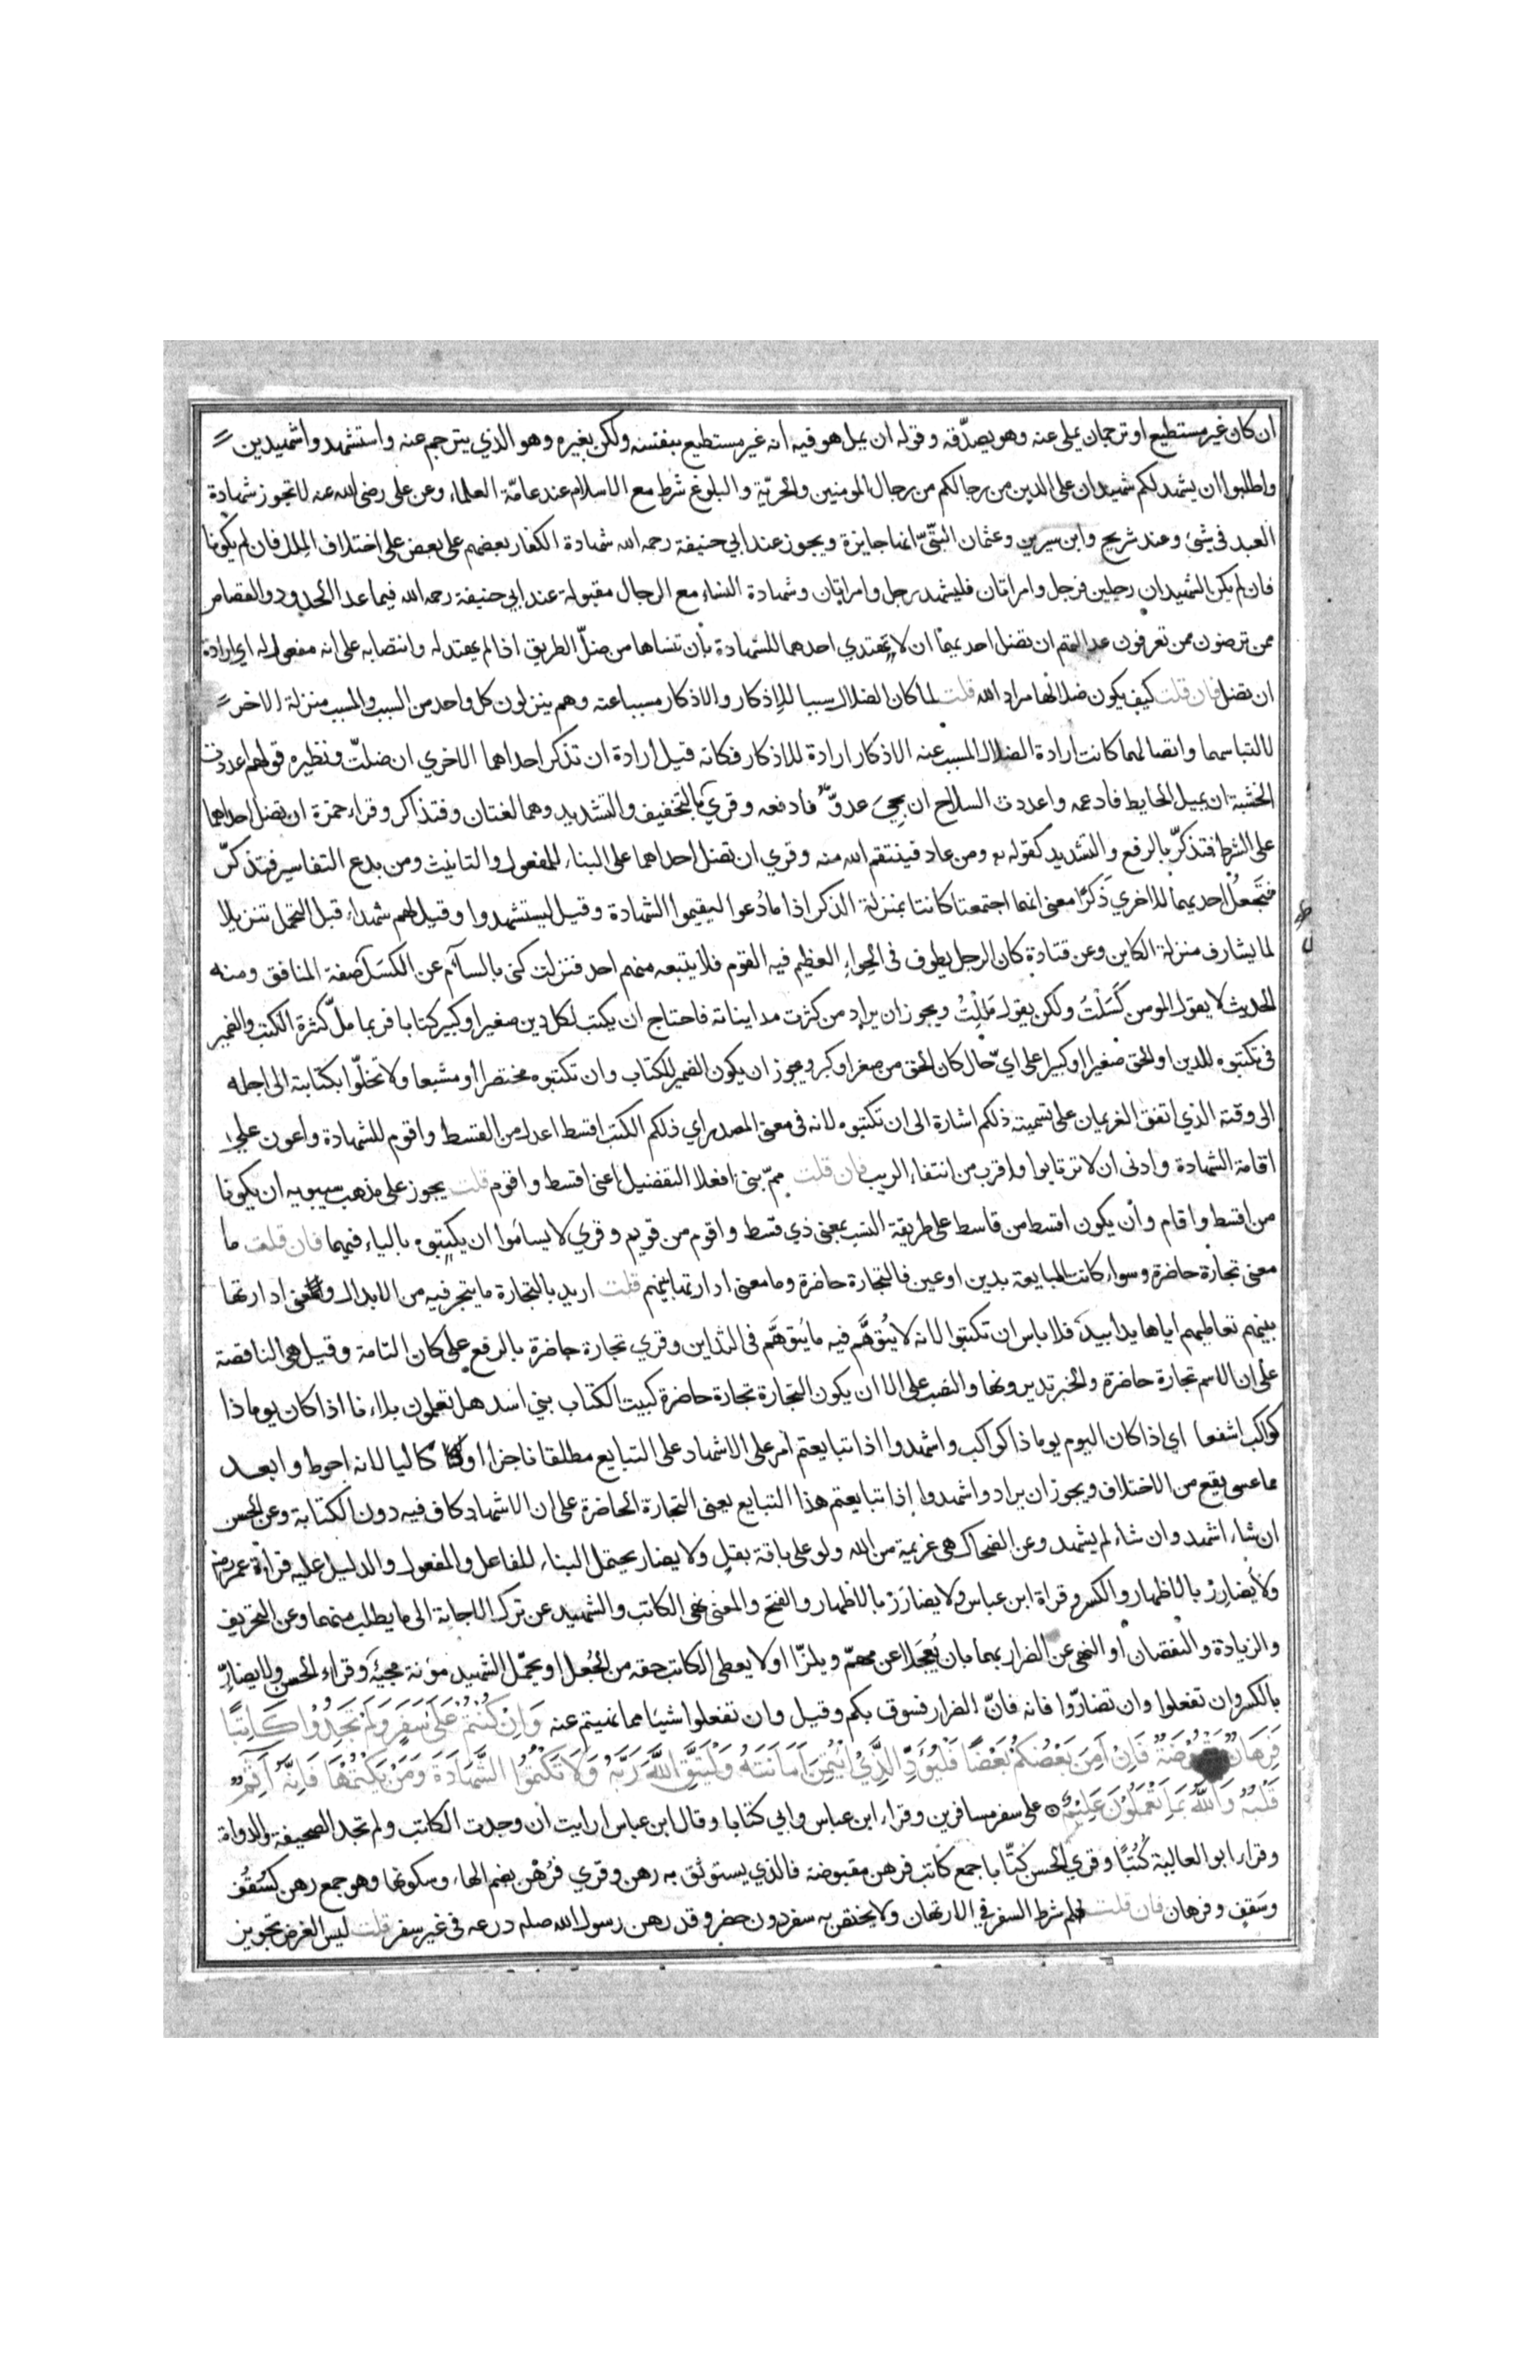 ان كان غير مستطيع او ترجمان يملي عنه وهو يصدّقه وقوله ان يمل هو فيه انه غير مستطيع بنفسه ولكن بغيره وهو الذي يترجم عنه واستشهدوا شهيدين
واطلبوا ان يشهد لكم شهيدان على الدين من رجالكم من رجال المومنين والحريّة والبلوغ شرط مع الاسلام عند عامّة العلماء وعن على رضى الله عنه لا تجوز شهادة
العبد فى شئ وعند شريح وابن سيرين وعثمان البتّيّ انها جايزة ويجوز عند ابي حنيفة رحمه الله شهادة الكفار بعضهم على بعض على اختلاف الملل فان لم يكونا
فان لم يكن الشهيدان رجلين فرجل وامراتان فليشهد رجل وامراتان وشهادة النساء مع الرجال مقبولة عند ابي حنيفة رحمه الله فيما عدا الحدود والقصاص
ممن ترضون ممن تعرفون عدالتهم ان تضل احديهما ان لا تهتدي احدهما للشهادة بان تنساها من ضلّ الطريق اذا لم يهتد له وانتصابه على انه مفعول له اي ارادة
ان تضل فان قلت كيف يكون ضلالها مراد الله قلت لما كان الضلال سببا للاذكار والاذكار مسببا عنه وهم ينزلون كل واحد من السبب والمسبب منزلة الاخر
لالتباسهما واتصالهما كانت ارادة الضلال المسبب عنه الاذكار ارادة للاذكار فكانه قيل ارادة ان تذكر احداهما الاخري ان ضلّت ونظيره قولهم اعددت
الخشبة ان يميل الحايط فادعمه واعددت السلاح ان يجئ عدوّ فادفعه وقرئ بالتخفيف والتشديد وهما لغتان وفتذاكر وقراء حمزة ان تضل احداهما
على الشرط فتذكرّ بالرفع والتشديد كقوله ومن عاد فينتقم الله منه وقري ان تضل احداهما على البناء للمفعول والتانيث ومن بدع التفاسير فتذكرّ
فتجعل احديهما الاخري ذكرًا معنى انهما اجتمعتا كانتا بمنزلة الذكر اذا ما دُعوا ليقيموا الشهادة وقيل ليستشهدوا وقيل لهم شهداء قبل التحمل تنزيلا
لما يشارف منزلة الكاين وعن قتادة كان الرجل يطوف فى الحِواء العظيم فيه القوم فلا يتبعه منهم احد فنزلت كنى بالسأم عن الكسل صفة المنافق ومنه
الحديث لا يقول المومن كَسَلْتُ ولكن يقول مَلِلْتُ ويجوز ان يراد من كثرت مدايناته فاحتاج ان يكتب لكل دين صغيرا وكبير كتابا فربما ملّ كثرة الكتب والضمير
فى تكتبوه للدين او الحق صغيرا او كبيرا على ايّ حال كان الحق من صغر او كبر ويجوز ان يكون الضمير للكتاب وان تكتبوه مختصرا او مشبعا ولا تخلّوا بكتابته الى اجله
الى وقته الذي اتفق الغريمان على تسميته ذلكم اشارة الى ان تكتبوه لانه فى معنى المصدر اي ذلكم الكتب اقسط اعدل من القسط واقوم للشهادة واعون على
اقامة الشهادة وادنى ان لا ترتابوا واقرب من انتفاء الريب فان قلت ممّ بنى افعلا التفضيل اعنى اقسط واقوم قلت يجوز على مذهب سيبويه ان يكونا
من اقسط واقام وان يكون اقسط من قاسط على طريقة النسب بمعنى ذي قسط واقوم من قويم وقري لا يسأموا ان يكتبوه بالياء فيهما فان قلت ما
معنى تجارة حاضرة وسواء كانت المبايعة بدين او عين فالتجارة حاضرة وما معنى ادارتها بينهم قلت اريد بالتجارة ما يتجر فيه من الابدال ومعنى ادارتها
بينهم تعاطيهم اياها يدا بيد فلا باس ان تكتبوا لانه لا يُتوهَّم فيه ما يُتوهَّم فى التداين وقري تجارة حاضرة بالرفع على كان التامة وقيل هى الناقصة
على ان الاسم تجارة حاضرة والخبر تديرونها والنصب على الا ان يكون التجارة تجارة حاضرة كبيت الكتاب بني اسد هل تعلمون بلاءنا اذا كان يوما ذا
كواكب اشفعا اي اذا كان اليوم يوما ذا كواكب واشهدوا اذا تبايعتم امر على الاشهاد على التبايع مطلقا ناجزا او كاليا لانه احوط وابعد
مما عسى يقع من الاختلاف ويجوز ان يراد واشهدوا اذا تبايعتم هذا التبايع يعنى التجارة الحاضرة على ان الاشهاد كاف فيه دون الكتابة وعن الحسن
ان شاء اشهد وان شاء لم يشهد وعن الضحاك هى عزيمة من الله ولو على باقة بقل ولا يضار يحتمل البناء للفاعل والمفعول والدليل عليه قراءة عمر رضه
ولا يُضارِرْ بالاظهار والكسر وقراة ابن عباس ولا يضارَرْ بالاظهار والفتح والمعنى نهى الكاتب والشهيد عن ترك الاجابة الى ما يطلب منهما وعن التحريف
والزيادة والنقصان او النهى عن الضرار بهما بان يُعجَلا عن مهمّ ويلزّا او لا يعطى الكاتب حقه من الجُعل او يحمّل الشهيد مؤنة مجيئه وقراء الحسن ولا يضارِّ
بالكسر وان تفعلوا وان تضارّوا فانه فانّ الضرار فسوق بكم وقيل وان تفعلوا شيئا مما نهيتم عنه وَاِنْ كُنْتُمْ عَلَى سَفَرٍ وَلَمْ تَجِدُوْا كَاتِبًا
فَرِهَانٌ مَقْبُوْضَةٌ فَاِنْ اَمِنَ بَعْضُكُمْ بَعْضًا فَلْيُؤَدِّ الَّذِيْ ائْتُمِنَ اَمَانَتَهُ وَلْيَتَّقِ اللّٰهَ رَبَّهُ وَلَا تَكْتُمُوْا الشَّهَادَةَ وَمَنْ يَكْتُمْهَا فَاِنَّهُ آثِمٌ
قَلْبُهُ وَاللّٰهُ بِمَا تَعْمَلُوْنَ عَلِيْمٌ على سفر مسافرين وقراء ابن عباس وابي كتابا وقال ابن عباس ارايت ان وجدت الكاتب ولم تجد الصحيفة والدواة
وقراء ابو العالية كُتُبًا وقري الحسن كتّابا جمع كاتب فرهن مقبوضة فالذي يستوثق به رهن وقري فرُهُن بضم الهاء وسكونها وهو جمع رهن كسُقُف
وسَقف وفرهان فان قلت لم شرط السفر فى الارتهان ولا يختص به سفر دون حضر وقد رهن رسول الله صلم درعه فى غير سفر قلت ليس الغرض تجويز